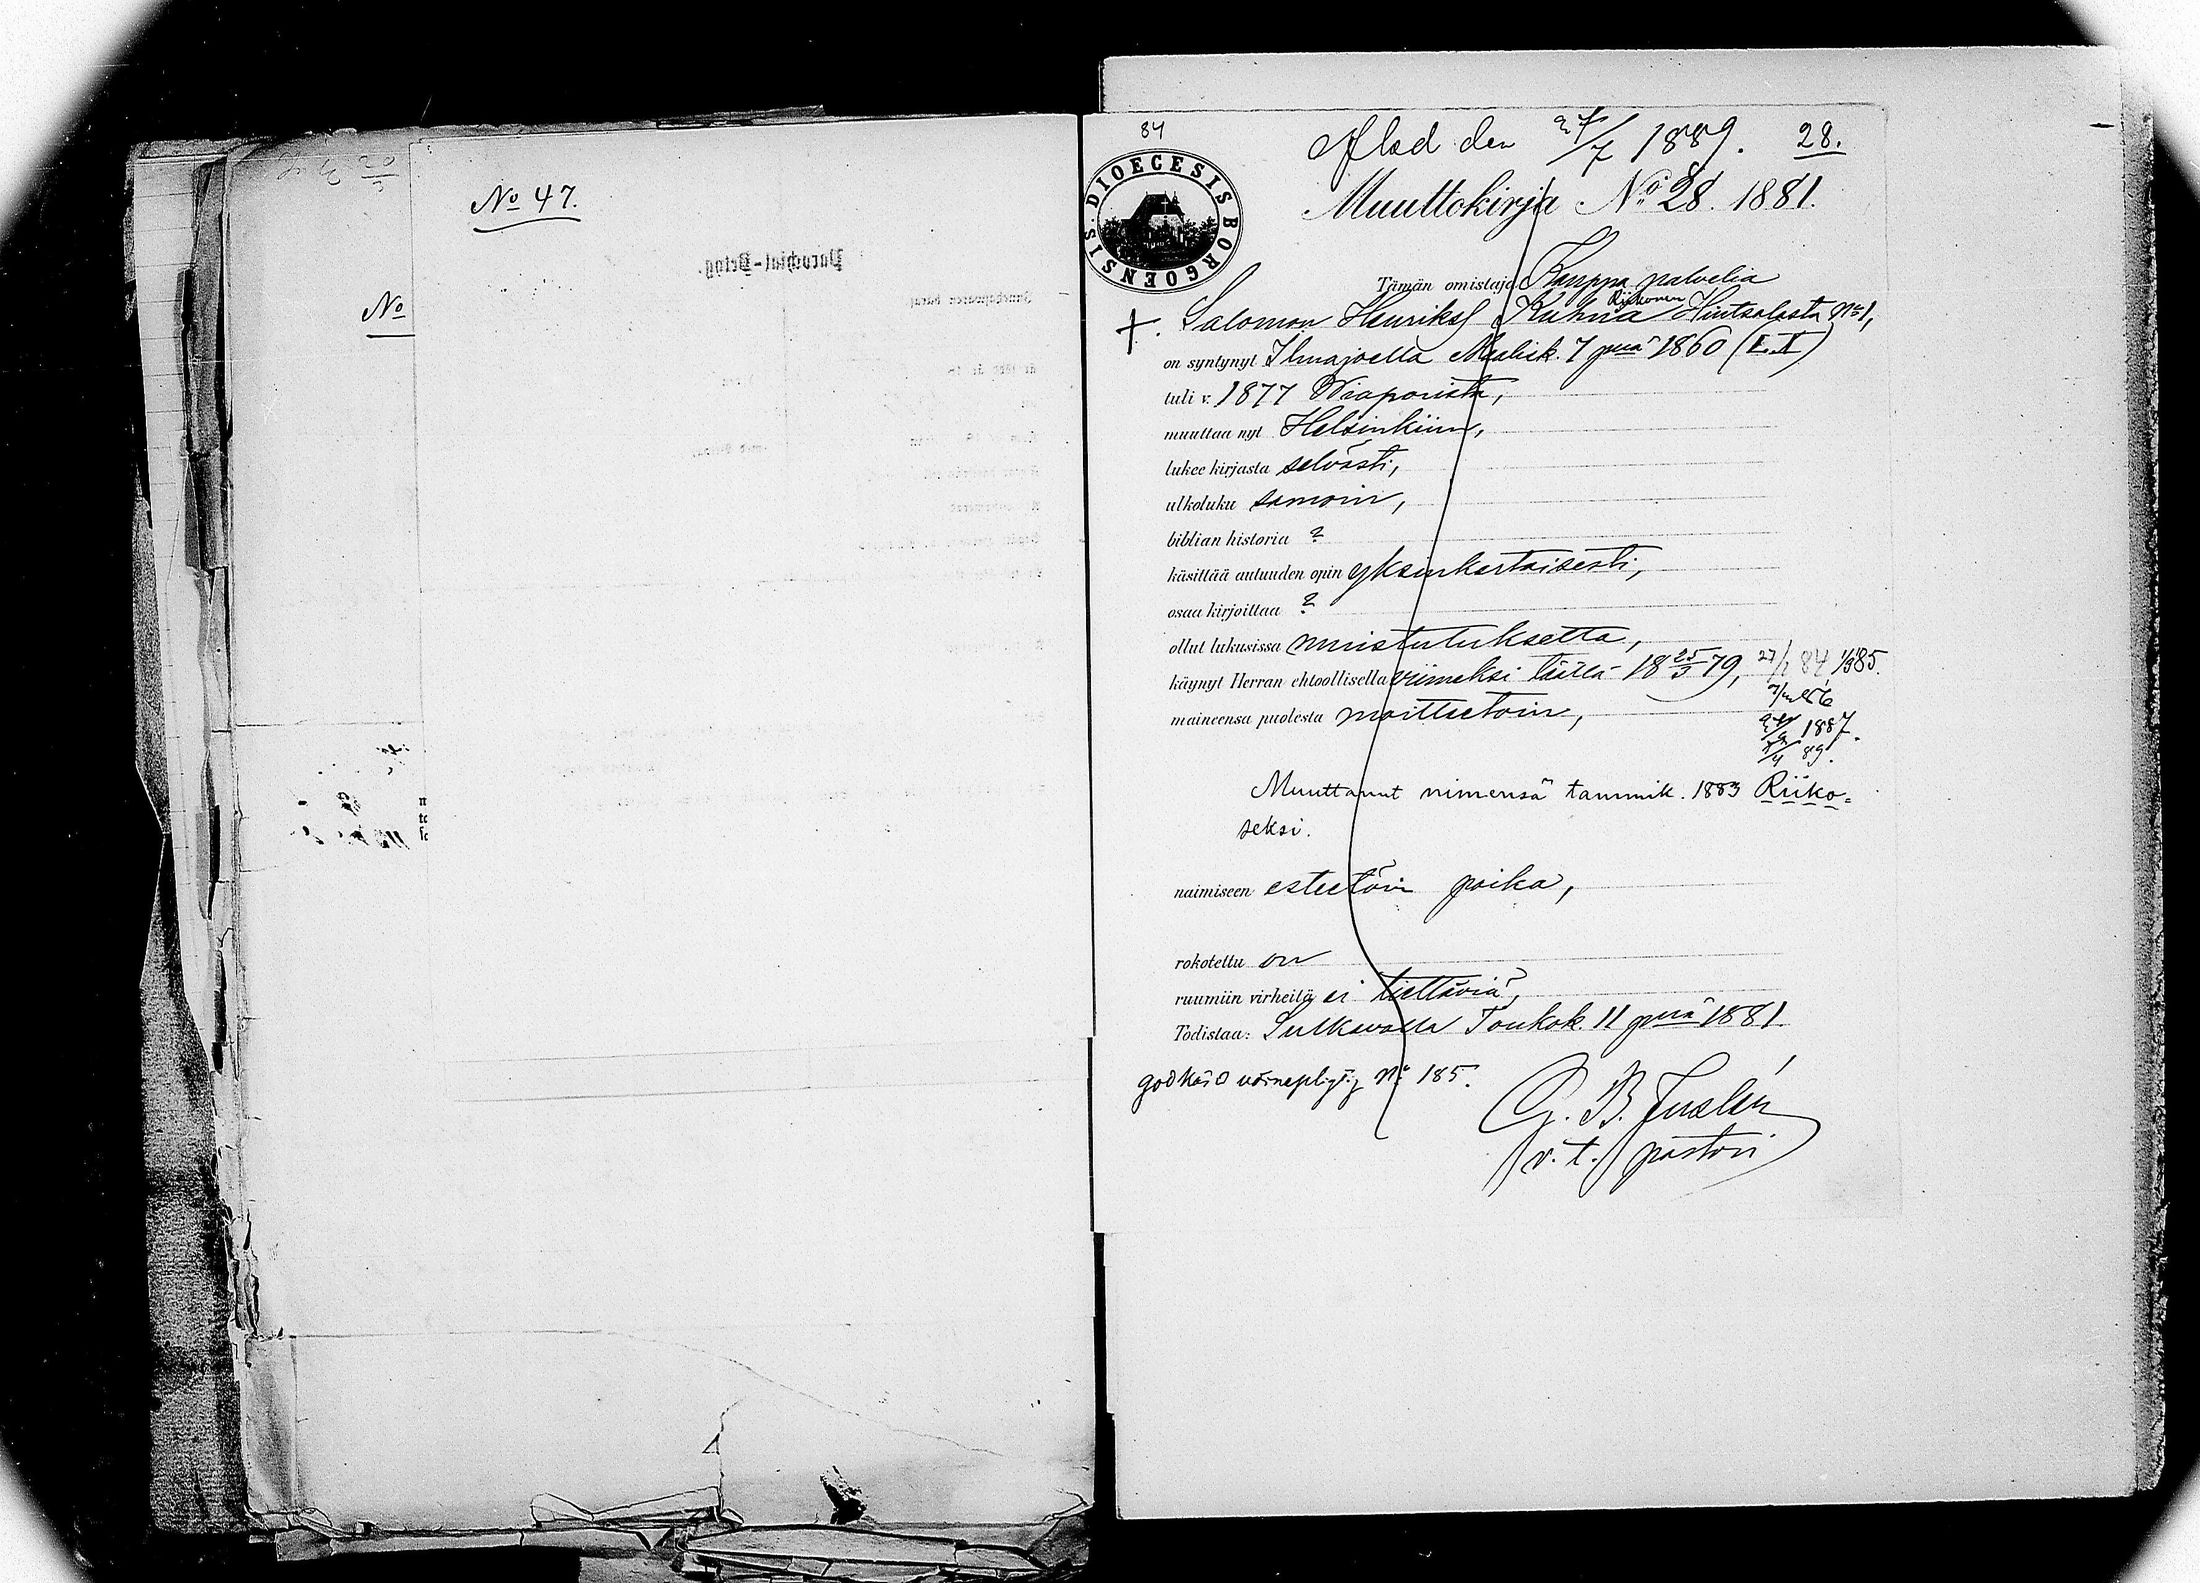 No 47.
No
84
Afled den 27/7 1889. 28.
DIOECESIS BORGOENSIS
Muuttokirja No 28. 1881.
Tämän omistaja Kauppa palvelia
Riikonen
Salomon Henriks Kuhna Hintsalasta No 1,
on syntynyt Ilmajoella Maalisk. 7 pnä 1860 (E.T)
tuli v. 1877 Wiaporista,
muuttaa nyt Helsinkiin,
lukee kirjasta selvästi,
ulkoluku samoin,
biblian historia ?
käsittää autuuden opin yksinkertaisesti,
osaa kirjoittaa ?
ollut lukusissa muistutuksetta,
käynyt Herran ehtoollisella viimeksi täällä 18 25/3 79, 27/1 84 85.
86
maineensa puolesta moitteetoin,
1887.
89.
Muuttanut nimensä tammik. 1883 Riiko-
seksi.
naimiseen esteetöin poika,
rokotettu on
ruumiin virheitä ei tiettäviä,
Todistaa: Sulkavalla Toukok. 11 pnä 1881.
godkänd värnepligtig No 185.
G. B. Juslén
v. t. pastori